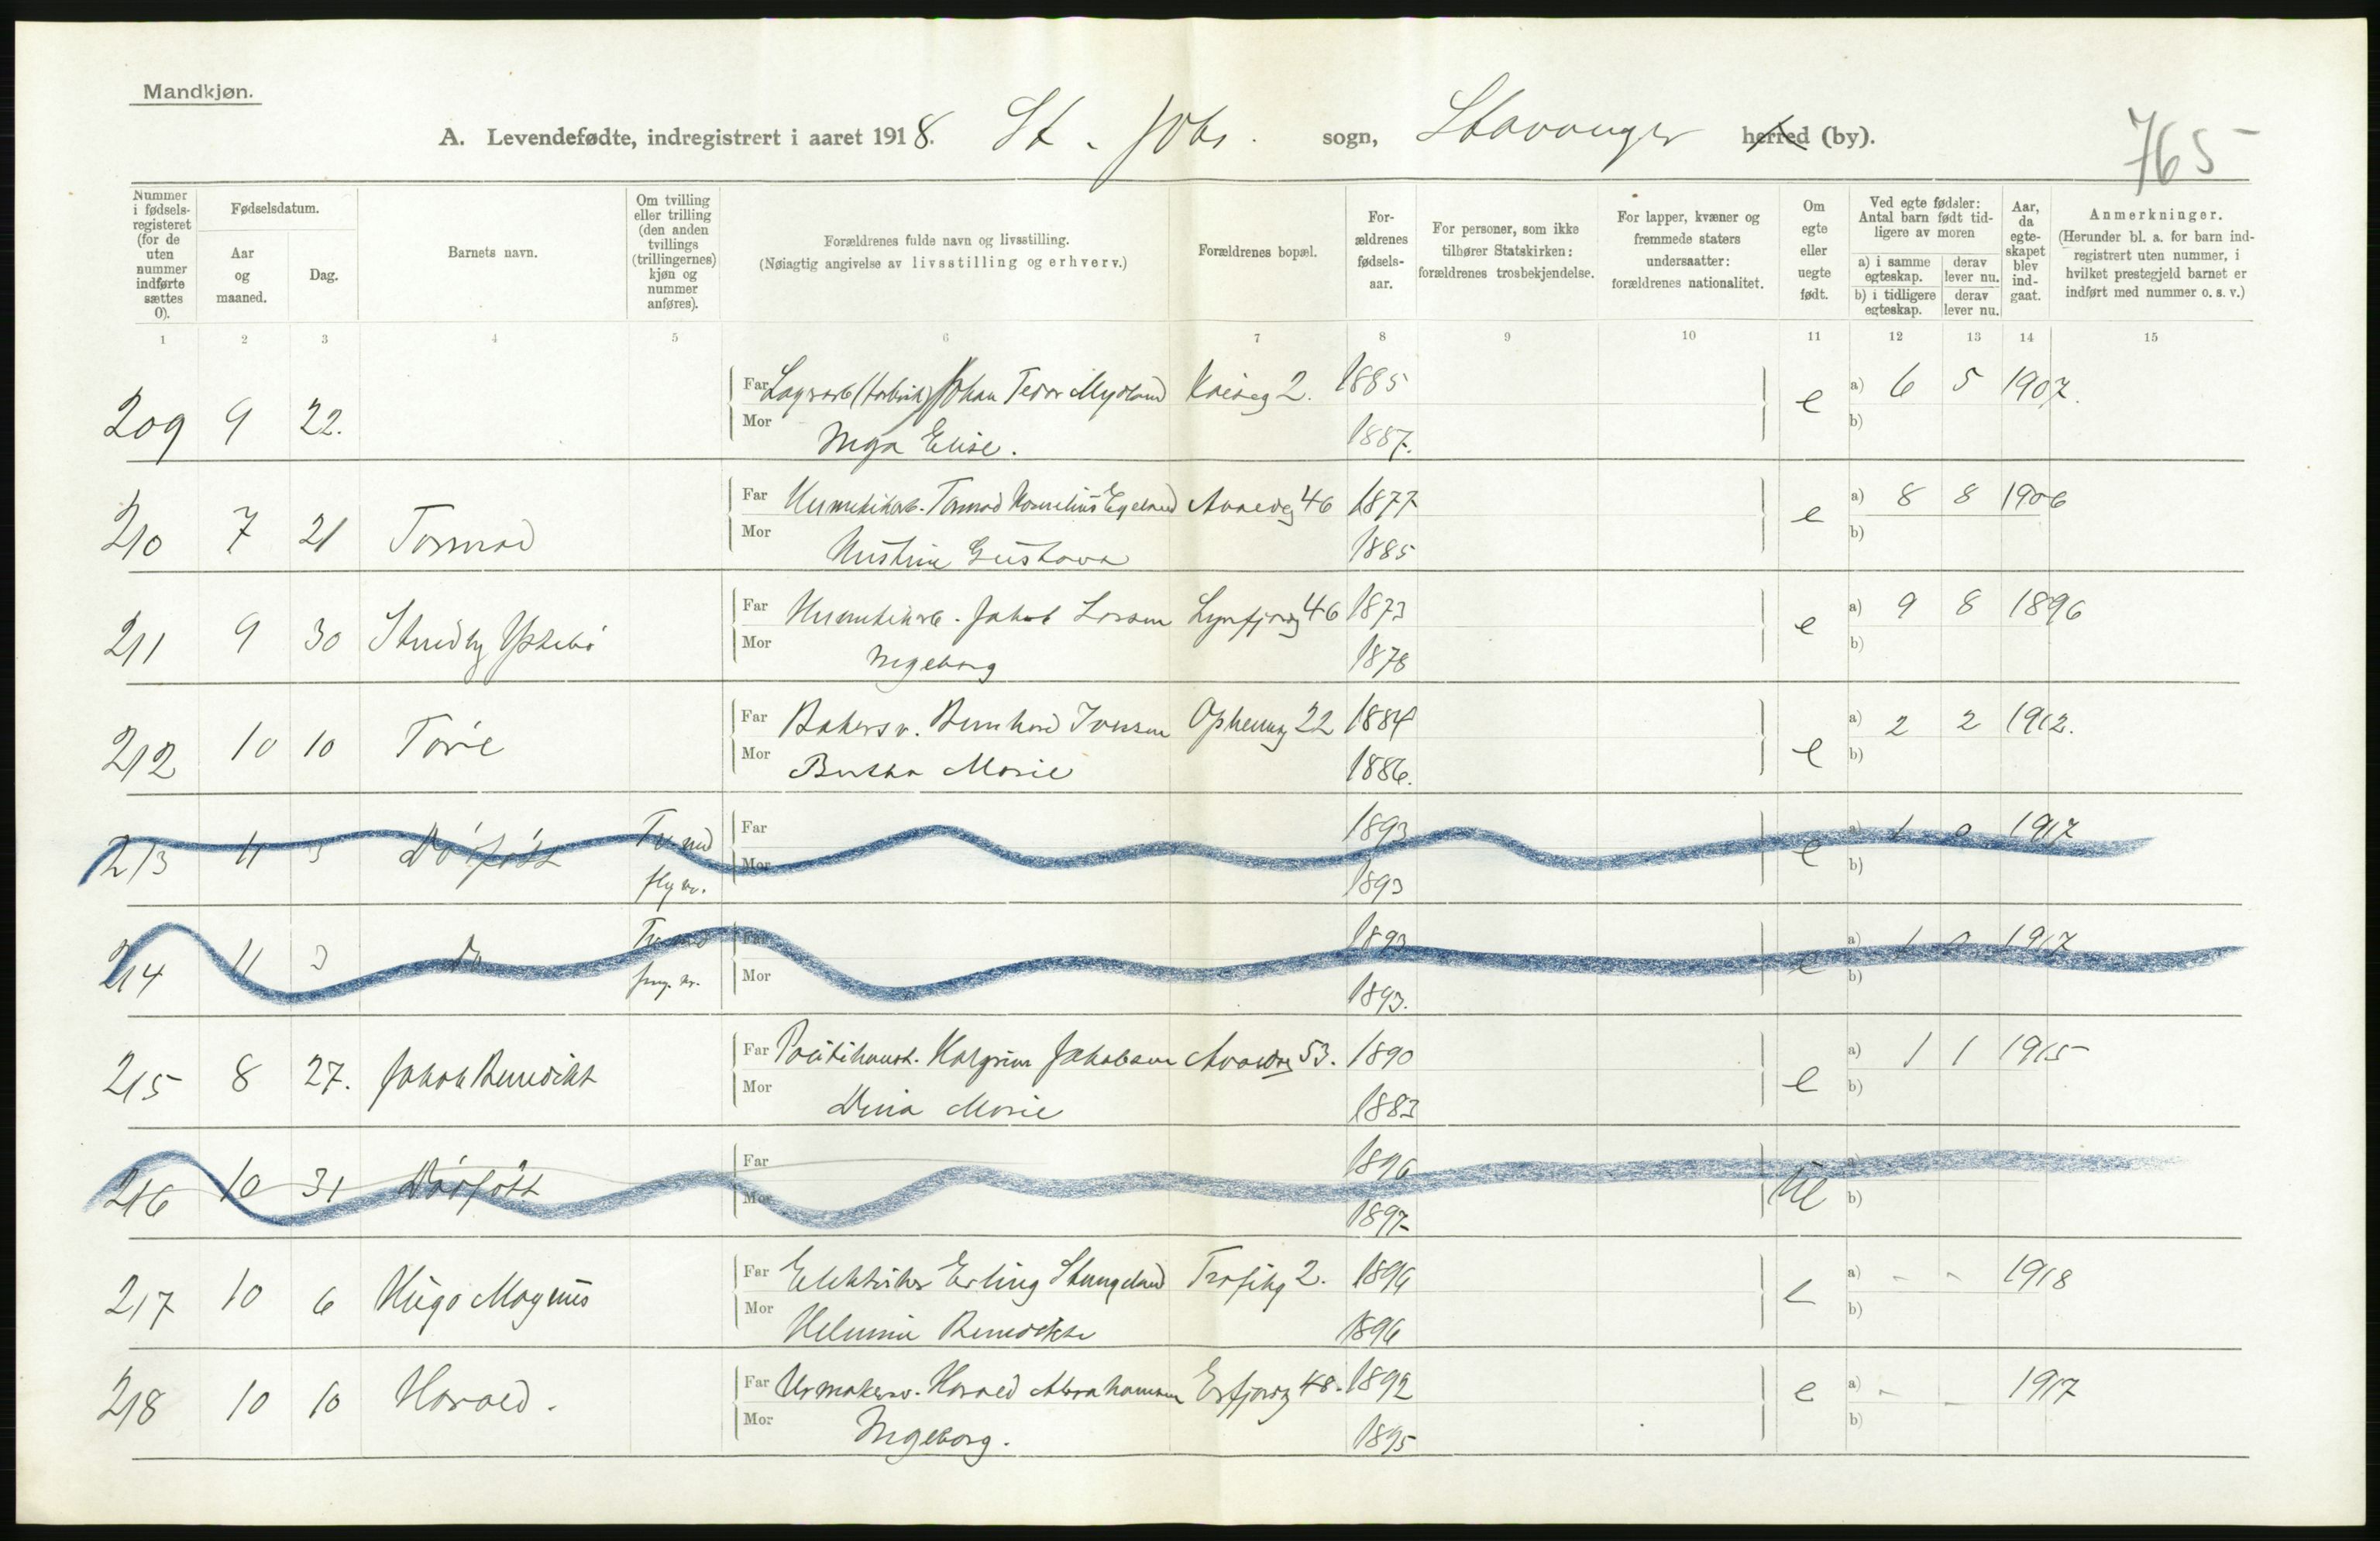 Mandkjøn.
765
A. Levendefødte, indregistrert i aaret 1918. St. Joh. sogn, Stavanger herred (by).
Nummer i fødselsregisteret (for de uten nummer indførte sættes 0).
Fødselsdatum.
Aar og maaned.
Dag.
Barnets navn.
Om tvilling eller trilling (den anden tvillings (trillingernes) kjøn og nummer anføres).
Forældrenes fulde navn og livsstilling.
(Nøiagtig angivelse av livsstilling og erhverv.)
Forældrenes bopæl.
Forældrenes fødselsaar.
For personer, som ikke tilhører Statskirken: forældrenes trosbekjendelse.
For lapper, kvæner og fremmede staters undersaatter: forældrenes nationalitet.
Om egte eller uegte født.
Ved egte fødsler: Antal barn født tidligere av moren
a) i samme egteskap. derav lever nu.
b) i tidligere egteskap. derav lever nu.
Aar, da egteskapet blev indgaat.
Anmerkninger.
(Herunder bl. a. for barn indregistrert uten nummer, i hvilket prestegjeld barnet er indført med nummer o. s. v.)
1 2 3 4 5 6 7 8 9 10 11 12 13 14 15
209 9 22. Far Johan Tedor Mydland 2. 1885 e a) 6 5 1907.
Mor Inga Elise. 1887. b)
210 7 21 Tormod Far Hermetikarb. Tormod Kornelius Egeland 46 1877 e a) 8 8 1906
Mor Kristine Gustava 1885 b)
211 9 30 Far Hermetikarb. Jakob Larsen 46 1873 e a) 9 8 1896
Mor Ingeborg 1878 b)
212 10 10 Tore Far Bakersv. Bernhard Iversen 22 1884 e a) 2 2 1912.
Mor Bertha Marie 1886. b)
213 11 3 Dødfødt Tv. med Far 1893 e a) 1 0 1917
flg. nr. Mor 1893 b)
214 11 3 Do Tv. med Far 1893 e a) 1 0 1917
nr. Mor 1893. b)
215 8 27. Jakob Benedikt Far Politikonst. Halgrim Jakobsen 53. 1890 e a) 1 1 1915
Mor Dina Marie 1883 b)
216 10 31 Dødfødt Far 1896 ue a)
Mor 1897 b)
217 10 6 Hugo Magnus Far Elektriker Erling Stangeland 2. 1896 e a) - - 1918
Mor Helmine Benedikte 1896 b)
218 10 10 Harald. Far Urmakersv. Harald Abrahamsen Erfjordg 48. 1892 e a) - - 1917
Mor Ingeborg. 1895 b)